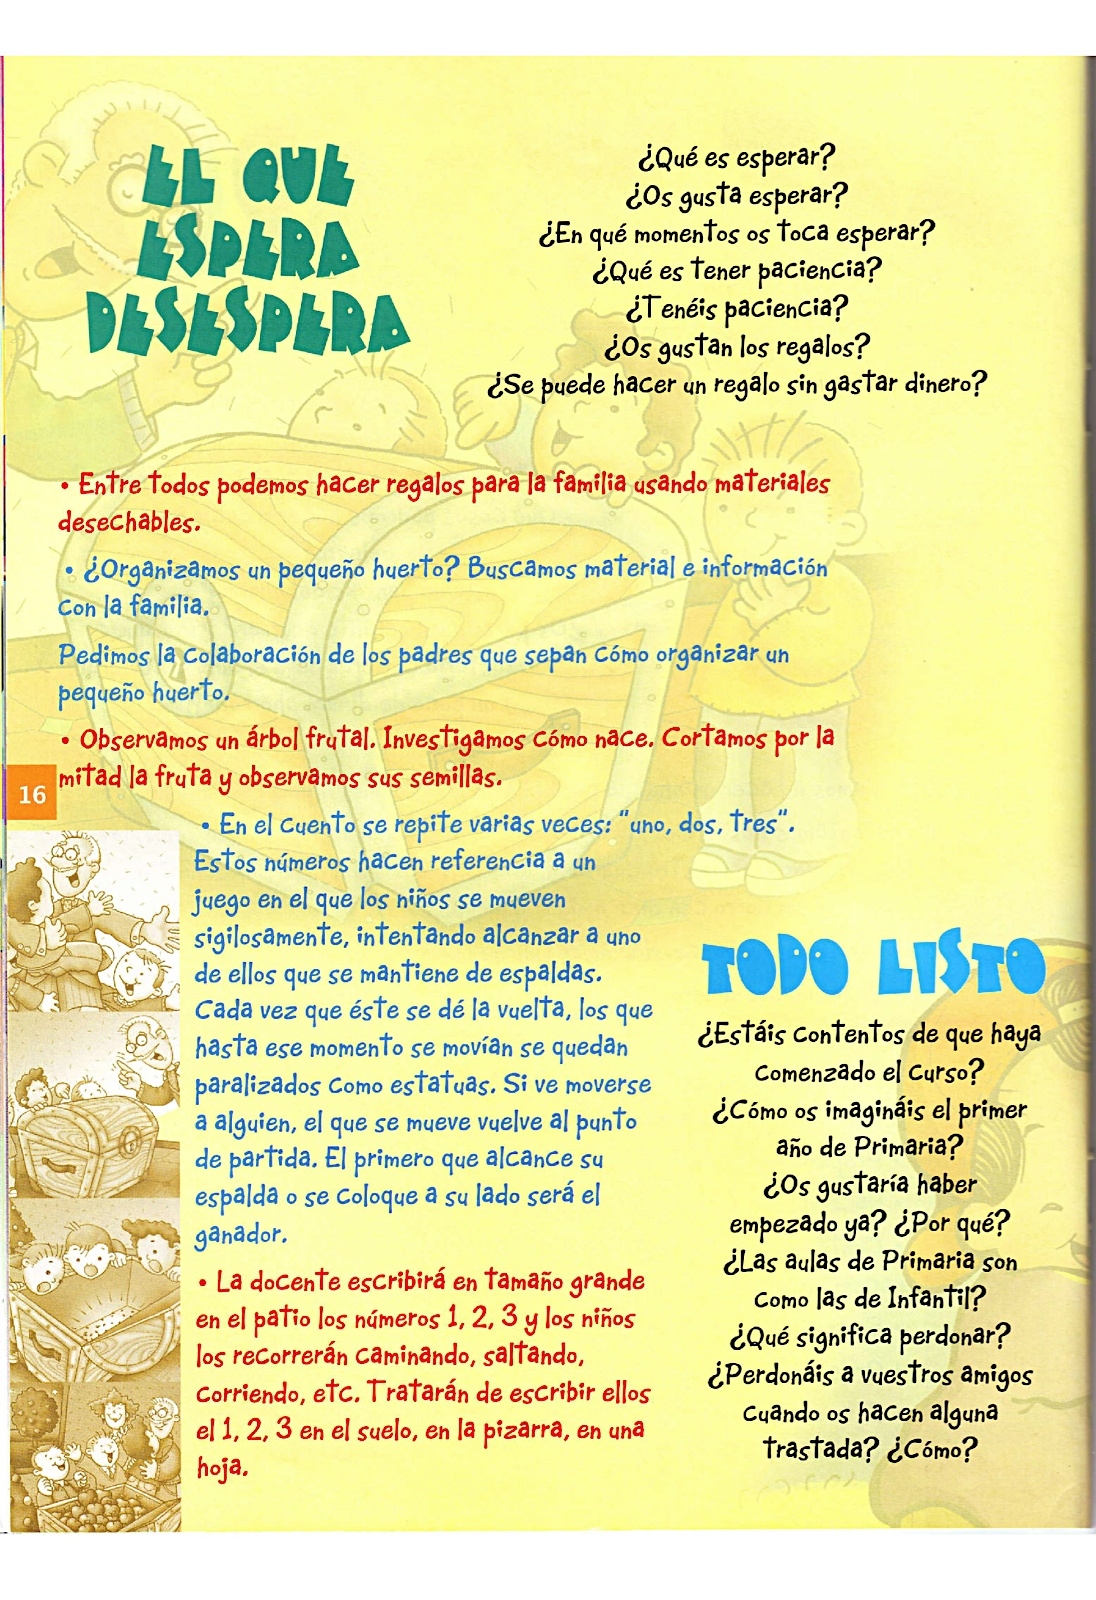 EL QUE
ESPERA
DESESPERA
¿Qué es esperar?
¿Os gusta esperar?
¿En qué momentos os toca esperar?
¿Qué es tener paciencia?
¿Tenéis paciencia?
¿Os gustan los regalos?
¿Se puede hacer un regalo sin gastar dinero?
• Entre todos podemos hacer regalos para la familia usando materiales
desechables.
• ¿Organizamos un pequeño huerto? Buscamos material e información
con la familia.
Pedimos la colaboración de los padres que sepan cómo organizar un
pequeño huerto.
• Observamos un árbol frutal. Investigamos cómo nace. Cortamos por la
mitad la fruta y observamos sus semillas.
16
• En el cuento se repite varias veces: "uno, dos, tres".
Estos números hacen referencia a un
juego en el que los niños se mueven
sigilosamente, intentando alcanzar a uno
de ellos que se mantiene de espaldas.
Cada vez que éste se dé la vuelta, los que
hasta ese momento se movían se quedan
paralizados como estatuas. Si ve moverse
a alguien, el que se mueve vuelve al punto
de partida. El primero que alcance su
espalda o se coloque a su lado será el
ganador.
• La docente escribirá en tamaño grande
en el patio los números 1, 2, 3 y los niños
los recorrerán caminando, saltando,
corriendo, etc. Tratarán de escribir ellos
el 1, 2, 3 en el suelo, en la pizarra, en una
hoja.
TODO LISTO
¿Estáis contentos de que haya
comenzado el curso?
¿Cómo os imagináis el primer
año de Primaria?
¿Os gustaría haber
empezado ya? ¿Por qué?
¿Las aulas de Primaria son
como las de Infantil?
¿Qué significa perdonar?
¿Perdonáis a vuestros amigos
cuando os hacen alguna
trastada? ¿Cómo?